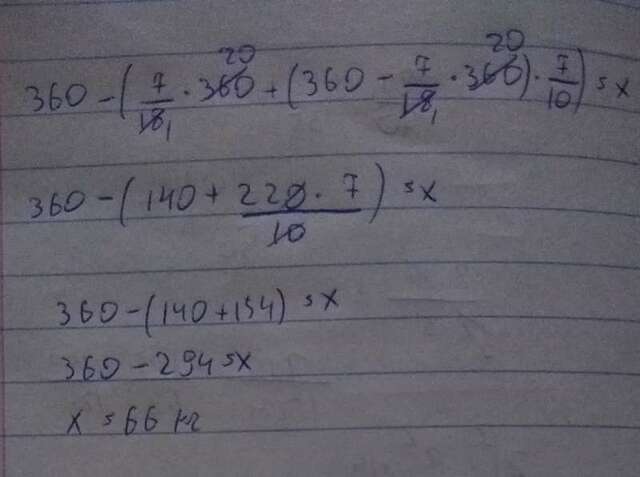 360 - ( 7/18 · 360 + ( 360 - 7/18 · 360 ) · 7/10 ) = x
20 20
1 1
360 - ( 140 + 220 · 7 / 10 ) = x
360 - ( 140 + 154 ) = x
360 - 294 = x
x = 66 кг